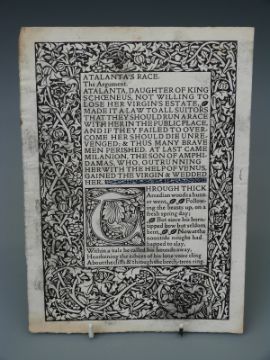 ATALANTA'S RACE.
The Argument.
ATALANTA, DAUGHTER OF KING
SCHŒNEUS, NOT WILLING TO
LOSE HER VIRGIN'S ESTATE,
MADE IT A LAW TO ALL SUITORS
THAT THEY SHOULD RUN A RACE
WITH HER IN THE PUBLIC PLACE,
AND IF THEY FAILED TO OVER-
COME HER SHOULD DIE UNRE-
VENGED; & THUS MANY BRAVE
MEN PERISHED. AT LAST CAME
MILANION, THE SON OF AMPHI-
DAMAS, WHO, OUTRUNNING
HER WITH THE HELP OF VENUS,
GAINED THE VIRGIN & WEDDED
HER.
THROUGH THICK
Arcadian woods a hunt-
er went, Follow-
ing the beasts up, on a
fresh spring day;
But since his horn-
tipped bow but seldom
bent, Now at the
noontide nought had
happed to slay,
Within a vale he called his hounds away,
Hearkening the echoes of his lone voice cling
About the cliffs & through the beech-trees ring.